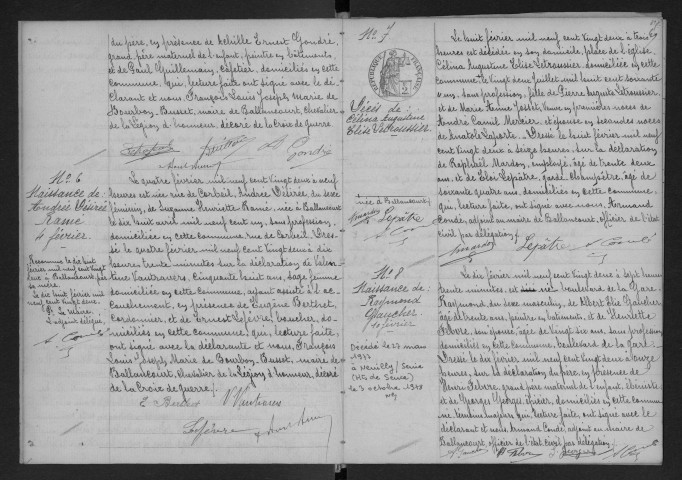 du père, en présence de Achille Ernest Gondré,
grand père maternel de l'enfant, peintre en bâtiments,
et de Paul Guillemain, cafetier, domiciliés en cette
commune, qui, lecture faite, ont signé avec le dé-
clarant et nous François Louis Joseph Marie de
Bourbon Busset, maire de Ballancourt, Chevalier
de la Légion d'honneur, décoré de la Croix de guerre.
Gondré
No 6
Naissance de
Andrée Désirée
Ramé
4 février.
Reconnue le dix huit
février mil neuf cent vingt
deux à Ballancourt par
sa mère.
Le dix huit février mil
neuf cent vingt deux.
Pr Le Maire,
L'adjoint délégué,
Le quatre février mil neuf cent vingt deux à neuf
heures est née rue de Corbeil, Andrée Désirée du sexe
féminin, de Suzanne Henriette Ramé, née à Ballancourt
le dix huit avril mil neuf cent un, sans profession,
domiciliée en cette commune rue de Corbeil. Dres-
sé le quatre février mil neuf cent vingt deux à dix
heures trente minutes sur la déclaration de Valen-
tine Vautravers, cinquante huit ans, sage femme
domiciliée en cette commune, ayant assisté à l'ac-
couchement, en présence de Eugène Berthet,
cordonnier, et de Ernest Lefèvre, boucher, do-
miciliés en cette commune, qui, lecture faite,
ont signé avec la déclarante et nous, François
Louis Joseph Marie de Bourbon Busset, maire de
Ballancourt, Chevalier de la Légion d'honneur, décoré
de la Croix de guerre.
E. Berthet V. Vautravers
Lefèvre
No 7
Décès de
Célina Augustine
Elise Letroussier
née à Ballancourt
Lepâtre
Le huit février mil neuf cent vingt deux à trois
heures est décédée en son domicile, place de l'église,
Célina Augustine Elise Letroussier, domiciliée en cette
commune, le vingt deux juillet mil huit cent soixante
ans, sans profession, fille de Pierre Auguste Letroussier
et de Marie Anne Josset, veuve en premières noces de
Honoré Camil Mercier, et épouse en secondes noces
de Anatole Laporte. Dressé le huit février mil neuf
cent vingt deux à seize heures, sur la déclaration
de Raphaël Mardon, employé, âgé de trente deux
ans, et de Lepâtre, garde champêtre, âgé de
soixante quatre ans, domiciliés en cette commune,
qui, lecture faite, ont signé avec nous, Armand
Condé, adjoint au maire de Ballancourt, officier de l'état
civil par délégation.
Mardon Lepâtre A. Condé
No 8
Naissance de
Raymond
Gaucher
10 février
Décédé le 27 mars
1977
à Neuilly/Seine
(Hts de Seine)
le 3 octobre 1978
Le dix février mil neuf cent vingt deux à sept heures
trente minutes, est né boulevard de la Gare
Raymond, du sexe masculin, de Albert Elie Gaucher,
âgé de trente ans, peintre en bâtiments, et de Henriette
Febvre, son épouse, âgée de vingt six ans, sans profession,
domiciliés en cette commune, boulevard de la gare.
Dressé le dix février mil neuf cent vingt deux à onze
heures, sur la déclaration du père, en présence de
Henri Febvre, grand père maternel de l'enfant, ébéniste
et de Georges Georges, épicier, domiciliés en cette commune
témoins majeurs qui, lecture faite, ont signé avec le
déclarant et nous, Armand Condé, adjoint au maire de
Ballancourt, officier de l'état civil par délégation.